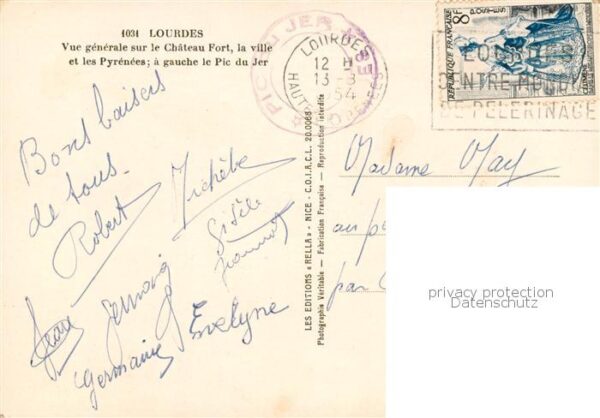 1031 LOURDES
Vue générale sur le Château Fort, la ville
et les Pyrénées; à gauche le Pic du Jer
PIC DU JER
LOURDES
12 H
13-8
54
8F
REPUBLIQUE FRANÇAISE
LOURDES
CENTRE
DE PELERINAGE
Bons baisers
de tous
Robert
Michèle
Gisèle
Jeannot
Jean
Germaine
Evelyne
LES EDITIONS « RELLA » - NICE - C.O.I.A.C.L. 20.0068
Photographie Véritable — Fabrication Française — Reproduction interdite
Madame May
au
par
privacy protection
Datenschutz